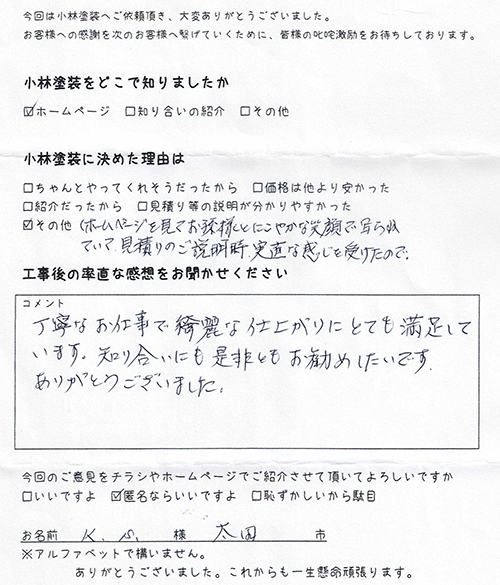 今回は小林塗装へご依頼頂き、大変ありがとうございました。
お客様への感謝を次のお客様へ繋げていくために、皆様の叱咤激励をお待ちしております。
小林塗装をどこで知りましたか
☑ホームページ □知り合いの紹介 □その他
小林塗装に決めた理由は
□ちゃんとやってくれそうだったから □価格は他より安かった
□紹介だったから □見積り等の説明が分かりやすかった
☑その他(ホームページを見てお孫様とにこやかな笑顔で写られ
ていて、見積りのご説明時、実直な感じを受けたので、
工事後の率直な感想をお聞かせください
コメント
丁寧なお仕事で綺麗な仕上がりにとても満足して
います。知り合いにも是非ともお勧めしたいです。
ありがとうございました。
今回のご意見をチラシやホームページでご紹介させて頂いてよろしいですか
□いいですよ ☑匿名ならいいですよ □恥ずかしいから駄目
お名前 K. S. 様 太田 市
※アルファベットで構いません。
ありがとうございました。これからも一生懸命頑張ります。